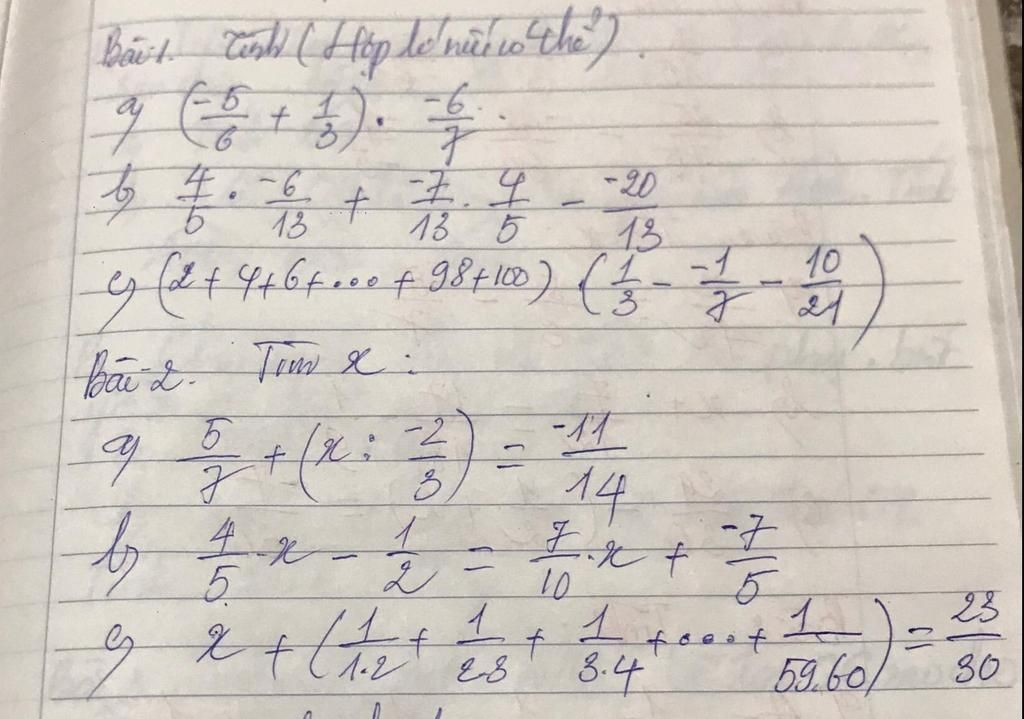 Bài 1. Tính (Hợp lí nếu có thể).
a) (-5/6 + 1/3) . -6/7
b) 4/5 . -6/13 + -7/13 . 4/5 - -20/13
c) (2+4+6+...+98+100) . (1/3 - -1/7 - 10/21)
Bài 2. Tìm x :
a) 5/7 + (x : -2/3) = -11/14
b) 4/5 . x - 1/2 = 7/10 . x + -7/5
c) x + (1/1.2 + 1/2.3 + 1/3.4 + ... + 1/59.60) = 23/30